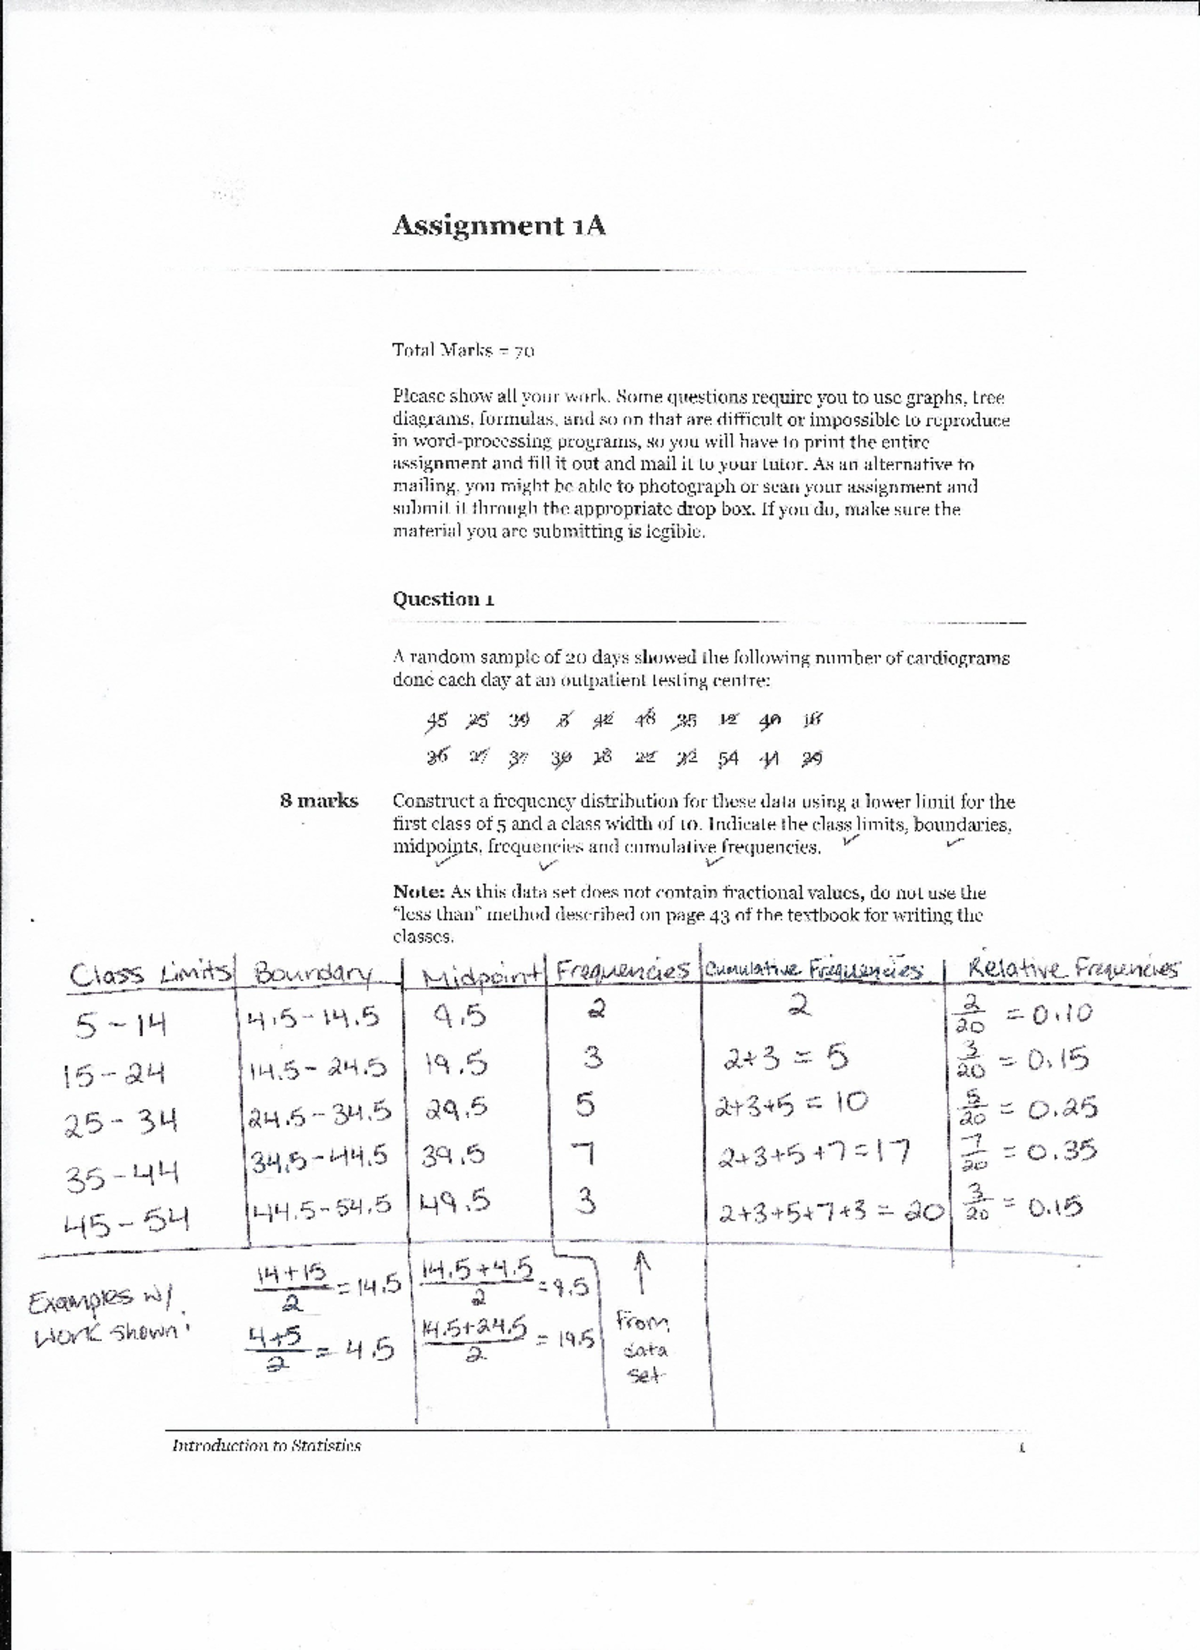 Assignment 1A
Total Marks = 70
Please show all your work. Some questions require you to use graphs, tree
diagrams, formulas, and so on that are difficult or impossible to reproduce
in word-processing programs, so you will have to print the entire
assignment and fill it out and mail it to your tutor. As an alternative to
mailing, you might be able to photograph or scan your assignment and
submit it through the appropriate drop box. If you do, make sure the
material you are submitting is legible.
Question 1
A random sample of 20 days showed the following number of cardiograms
done each day at an outpatient testing centre:
45 25 39 42 48 35 12 40
36 27 37 30 18 22 54
8 marks Construct a frequency distribution for these data using a lower limit for the
first class of 5 and a class width of 10. Indicate the class limits, boundaries,
midpoints, frequencies and cumulative frequencies.
Note: As this data set does not contain fractional values, do not use the
"less than" method described on page 43 of the textbook for writing the
classes.
Class Limits Boundary Midpoint Frequencies Cumulative Frequencies Relative Frequencies
5-14 4.5-14.5 9.5 2 2 2/20 = 0.10
15-24 14.5-24.5 19.5 3 2+3 = 5 3/20 = 0.15
25-34 24.5-34.5 29.5 5 2+3+5 = 10 5/20 = 0.25
35-44 34.5-44.5 39.5 7 2+3+5+7=17 7/20 = 0.35
45-54 44.5-54.5 49.5 3 2+3+5+7+3 = 20 3/20 = 0.15
Examples w/ 14+15/2 = 14.5 14.5+4.5/2 = 9.5 From
work shown: 4+5/2 = 4.5 14.5+24.5/2 = 19.5 data
set
Introduction to Statistics 1